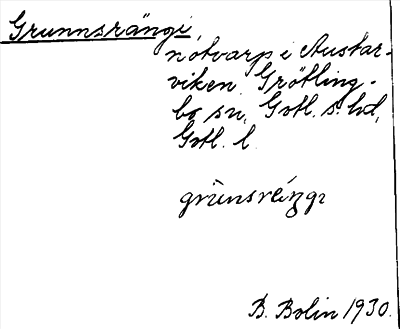 Grunnsrängi,
notvarp i Austar-
viken Grötling-
bo sn, Gotl. s. hd,
Gotl. l.
grùnsréŋgı
B. Bolin 1930.